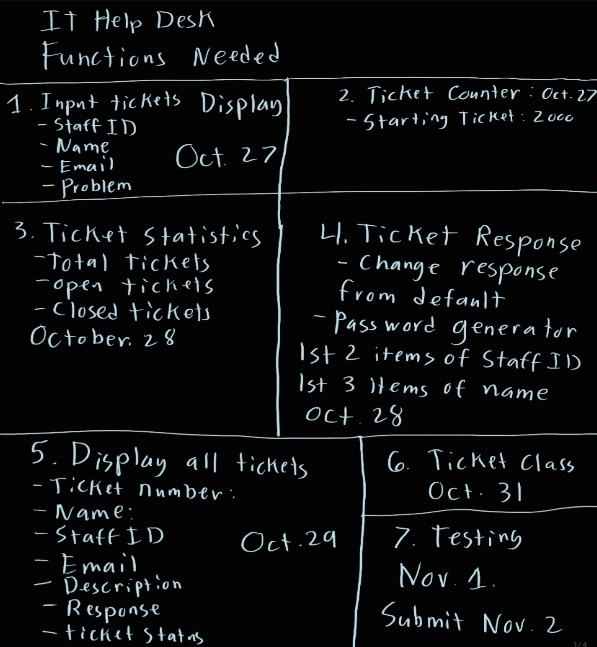 IT Help Desk
Functions Needed
1. Input tickets Display
- Staff ID
- Name
- Email
- Problem
Oct. 27
2. Ticket Counter : Oct. 27
- Starting Ticket : 2000
3. Ticket Statistics
- Total tickets
- open tickets
- Closed tickets
October. 28
4. Ticket Response
- Change response
from default
- Password generator
1st 2 items of Staff ID
1st 3 items of name
Oct. 28
5. Display all tickets
- Ticket number:
- Name:
- Staff ID
- Email
- Description
- Response
- ticket Status
Oct. 29
6. Ticket Class
Oct. 31
7. Testing
Nov. 1.
Submit Nov. 2
1/4